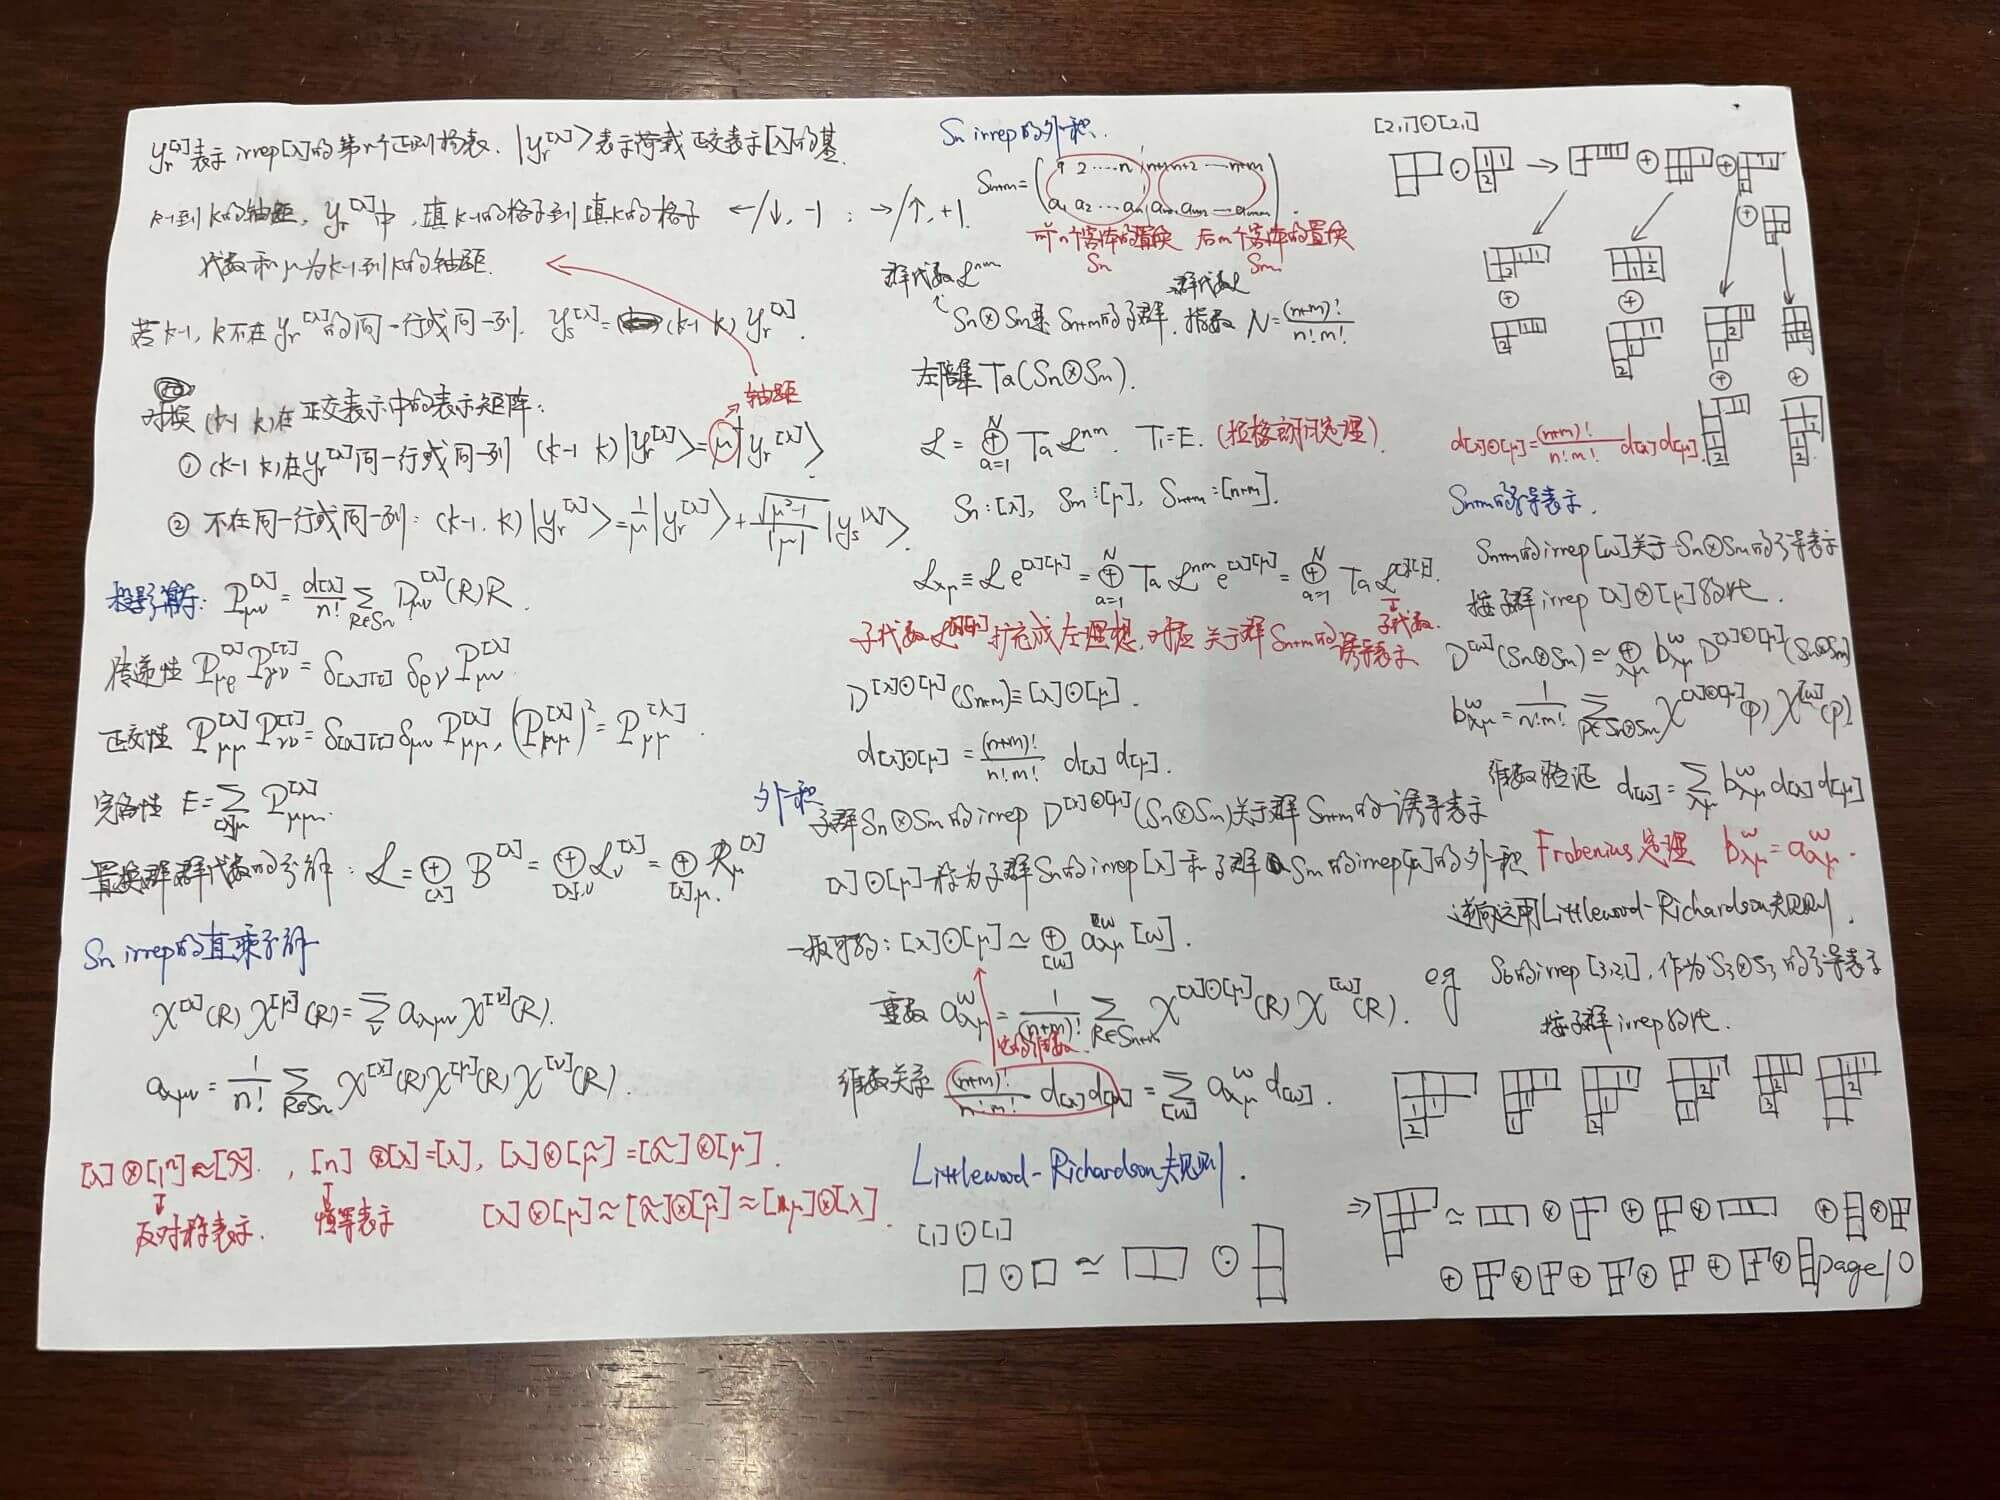 y_r^[λ] 表示 irrep[λ] 的第r个正则杨表. |y_r^[λ]> 表示荷载正交表示[λ]的基.
k-1到k的轴距, y_r^[λ]中, 填k-1的格子到填k的格子 ←/↓, -1 ; →/↑, +1.
代数和μ为k-1到k的轴距.
若k-1, k不在y_r^[λ]的同一行或同一列. y_s^[λ] = (k-1 k) y_r^[λ].
对换(k-1 k)在正交表示中的表示矩阵:
轴距
① (k-1 k)在y_r^[λ]同一行或同一列 (k-1 k)|y_r^[λ]> = μ|y_r^[λ]>
② 不在同一行或同一列: (k-1, k)|y_r^[λ]> = 1/μ |y_r^[λ]> + √(μ²-1)/|μ| |y_s^[λ]>.
投影算符: P_μν^[λ] = d[λ]/n! Σ_{R∈Sn} D_μν^[λ](R) R.
传递性 P_μρ^[λ] P_γν^[τ] = δ_[λ][τ] δ_ργ P_μν^[λ]
正交性 P_μμ^[λ] P_νν^[τ] = δ_[λ][τ] δ_μν P_μμ^[λ], (P_μμ^[λ])² = P_μμ^[λ].
完备性 E = Σ_{[λ]μ} P_μμ^[λ].
置换群群代数的分解: L = ⊕_[λ] B^[λ] = ⊕_{[λ],ν} L_ν^[λ] = ⊕_{[λ],μ} R_μ^[λ]
Sn irrep的直乘分解
χ^[λ](R) χ^[μ](R) = Σ_ν a_λμν χ^[ν](R).
a_λμν = 1/n! Σ_{R∈Sn} χ^[λ](R) χ^[μ](R) χ^[ν](R).
[λ]⊗[1^n]≈[λ̃]. , [n]⊗[λ]=[λ], [λ]⊗[μ̃]=[λ̃]⊗[μ].
反对称表示. 恒等表示 [λ]⊗[μ]≈[λ̃]⊗[μ̃]≈[μ]⊗[λ].
Sn irrep的外积.
S_{n+m} = ( 1 2 ····· n n+1 n+2 ··· n+m
a_1 a_2 ··· a_n a_{n+1} a_{n+2} ··· a_{n+m} ).
前n个客体的置换 后m个客体的置换
Sn Sm
群代数L^{nm} 群代数L
Sn⊗Sm是S_{n+m}的子群. 指数 N = (n+m)!/n!m!
左陪集 Ta(Sn⊗Sm).
L = ⊕_{a=1}^N Ta L^{nm}. T_1=E. (拉格朗日定理)
Sn:[λ], Sm:[μ], S_{n+m}:[n+m].
L_λμ ≡ L e^{[λ][μ]} = ⊕_{a=1}^N Ta L^{nm} e^{[λ][μ]} = ⊕_{a=1}^N Ta L^{[λ][μ]}.
子代数.
子代数L^{[λ][μ]}扩充成左理想, 对应关于群S_{n+m}的诱导表示
D^{[λ]⊙[μ]}(S_{n+m}) ≡ [λ]⊙[μ].
d_{[λ]⊙[μ]} = (n+m)!/n!m! d[λ] d[μ].
外积
子群Sn⊗Sm的irrep D^{[λ]⊗[μ]}(Sn⊗Sm)关于群S_{n+m}的诱导表示
[λ]⊙[μ]称为子群Sn的irrep[λ]和子群Sm的irrep[μ]的外积
一般可约: [λ]⊙[μ] ≃ ⊕_[ω] a_λμ^ω [ω].
重数 a_λμ^ω = 1/(n+m)! Σ_{R∈S_{n+m}} χ^{[λ]⊙[μ]}(R) χ^[ω](R).
它的维数.
维数关系 (n+m)!/n!m! d[λ] d[μ] = Σ_[ω] a_λμ^ω d[ω].
Littlewood-Richardson规则.
[1]⊙[1]
⊙ ≃ ⊙
[2,1]⊙[2,1]
⊙ 1 1 2 → 1 1 ⊕ 1 1 ⊕ 1 1
⊕
d_{[λ]⊙[μ]} = (n+m)!/n!m! d[λ] d[μ].
S_{n+m}的分导表示.
S_{n+m}的irrep[ω]关于Sn⊗Sm的分导表示
按子群irrep [λ]⊗[μ]约化.
D^[ω](Sn⊗Sm) ≃ ⊕_λμ b_λμ^ω D^{[λ]⊗[μ]}(Sn⊗Sm)
b_λμ^ω = 1/n!m! Σ_{P∈Sn⊗Sm} χ^{[λ]⊗[μ]}(P) χ^[ω](P).
维数验证 d[ω] = Σ_λμ b_λμ^ω d[λ] d[μ]
Frobenius定理 b_λμ^ω = a_λμ^ω.
逆向运用Littlewood-Richardson规则.
eg S6的irrep[3,2,1], 作为S3⊗S3的分导表示
按子群irrep约化.
⇒ ≃ ⊗ ⊕ ⊗ ⊕ ⊗
⊕ ⊗ ⊕ ⊗ ⊕ ⊗
page 10